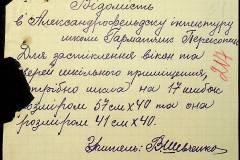 Відомість
в Александрофельдску інспектуру
школи
Для застіклення вікон та
дверей шкільного приміщення,
потрібно шкла на 17 шибок
розміром 57см x 40 та она
розміром 41 см x 40.
Учитель: В Шевченко